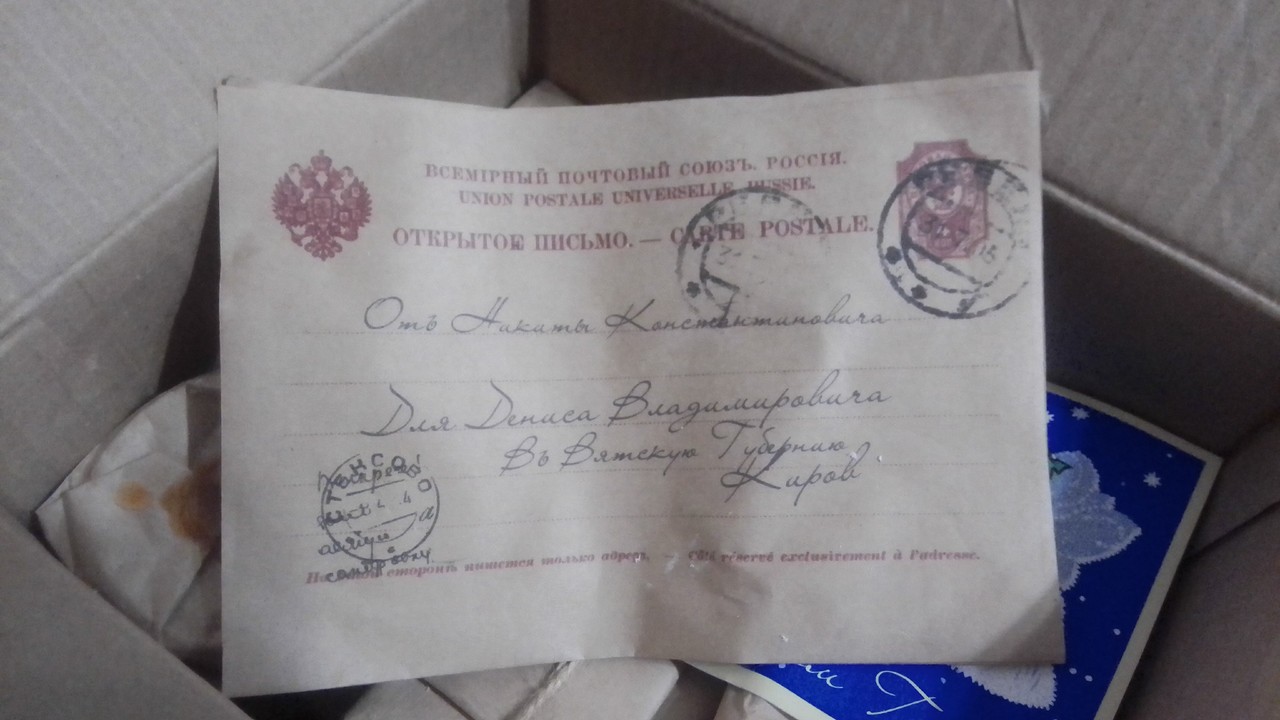 ВСЕМІРНЫЙ ПОЧТОВЫЙ СОЮЗЪ. РОССІЯ.
UNION POSTALE UNIVERSELLE. RUSSIE.
ОТКРЫТОЕ ПИСЬМО. — CARTE POSTALE.
Отъ Никиты Константиновича
Для Дениса Владимировича
Въ Вятскую Губернию
Киров
На этой сторонѣ пишется только адресъ. — Côté réservé exclusivement à l'adresse.